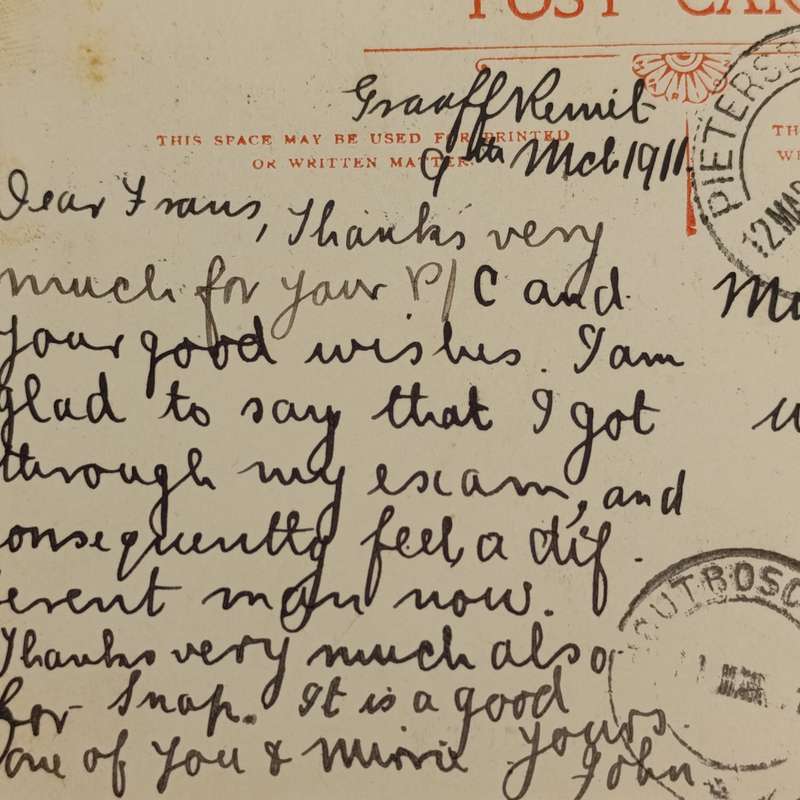 POST CAR
Graaff Reinet
THIS SPACE MAY BE USED FOR PRINTED
OR WRITTEN MATTER.
9th Mch 1911.
PIETERSB
12 MAR
TH
Dear Frans, Thanks very
much for your P/C and
your good wishes. I am
glad to say that I got
through my exam, and
consequently feel a dif-
ferent man now.
Thanks very much also
for Snap. It is a good
one of you &
yours
John
OUTBOSC